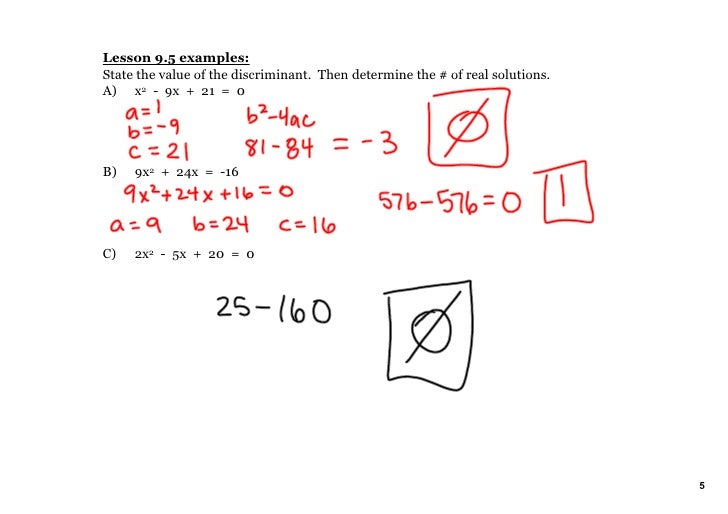 Lesson 9.5 examples:
State the value of the discriminant. Then determine the # of real solutions.
A) x² - 9x + 21 = 0
a=1
b=-9
c=21
b²-4ac
81-84 = -3
∅
B) 9x² + 24x = -16
9x²+24x+16=0
a=9 b=24 c=16
576-576=0
1
C) 2x² - 5x + 20 = 0
25-160
∅
5